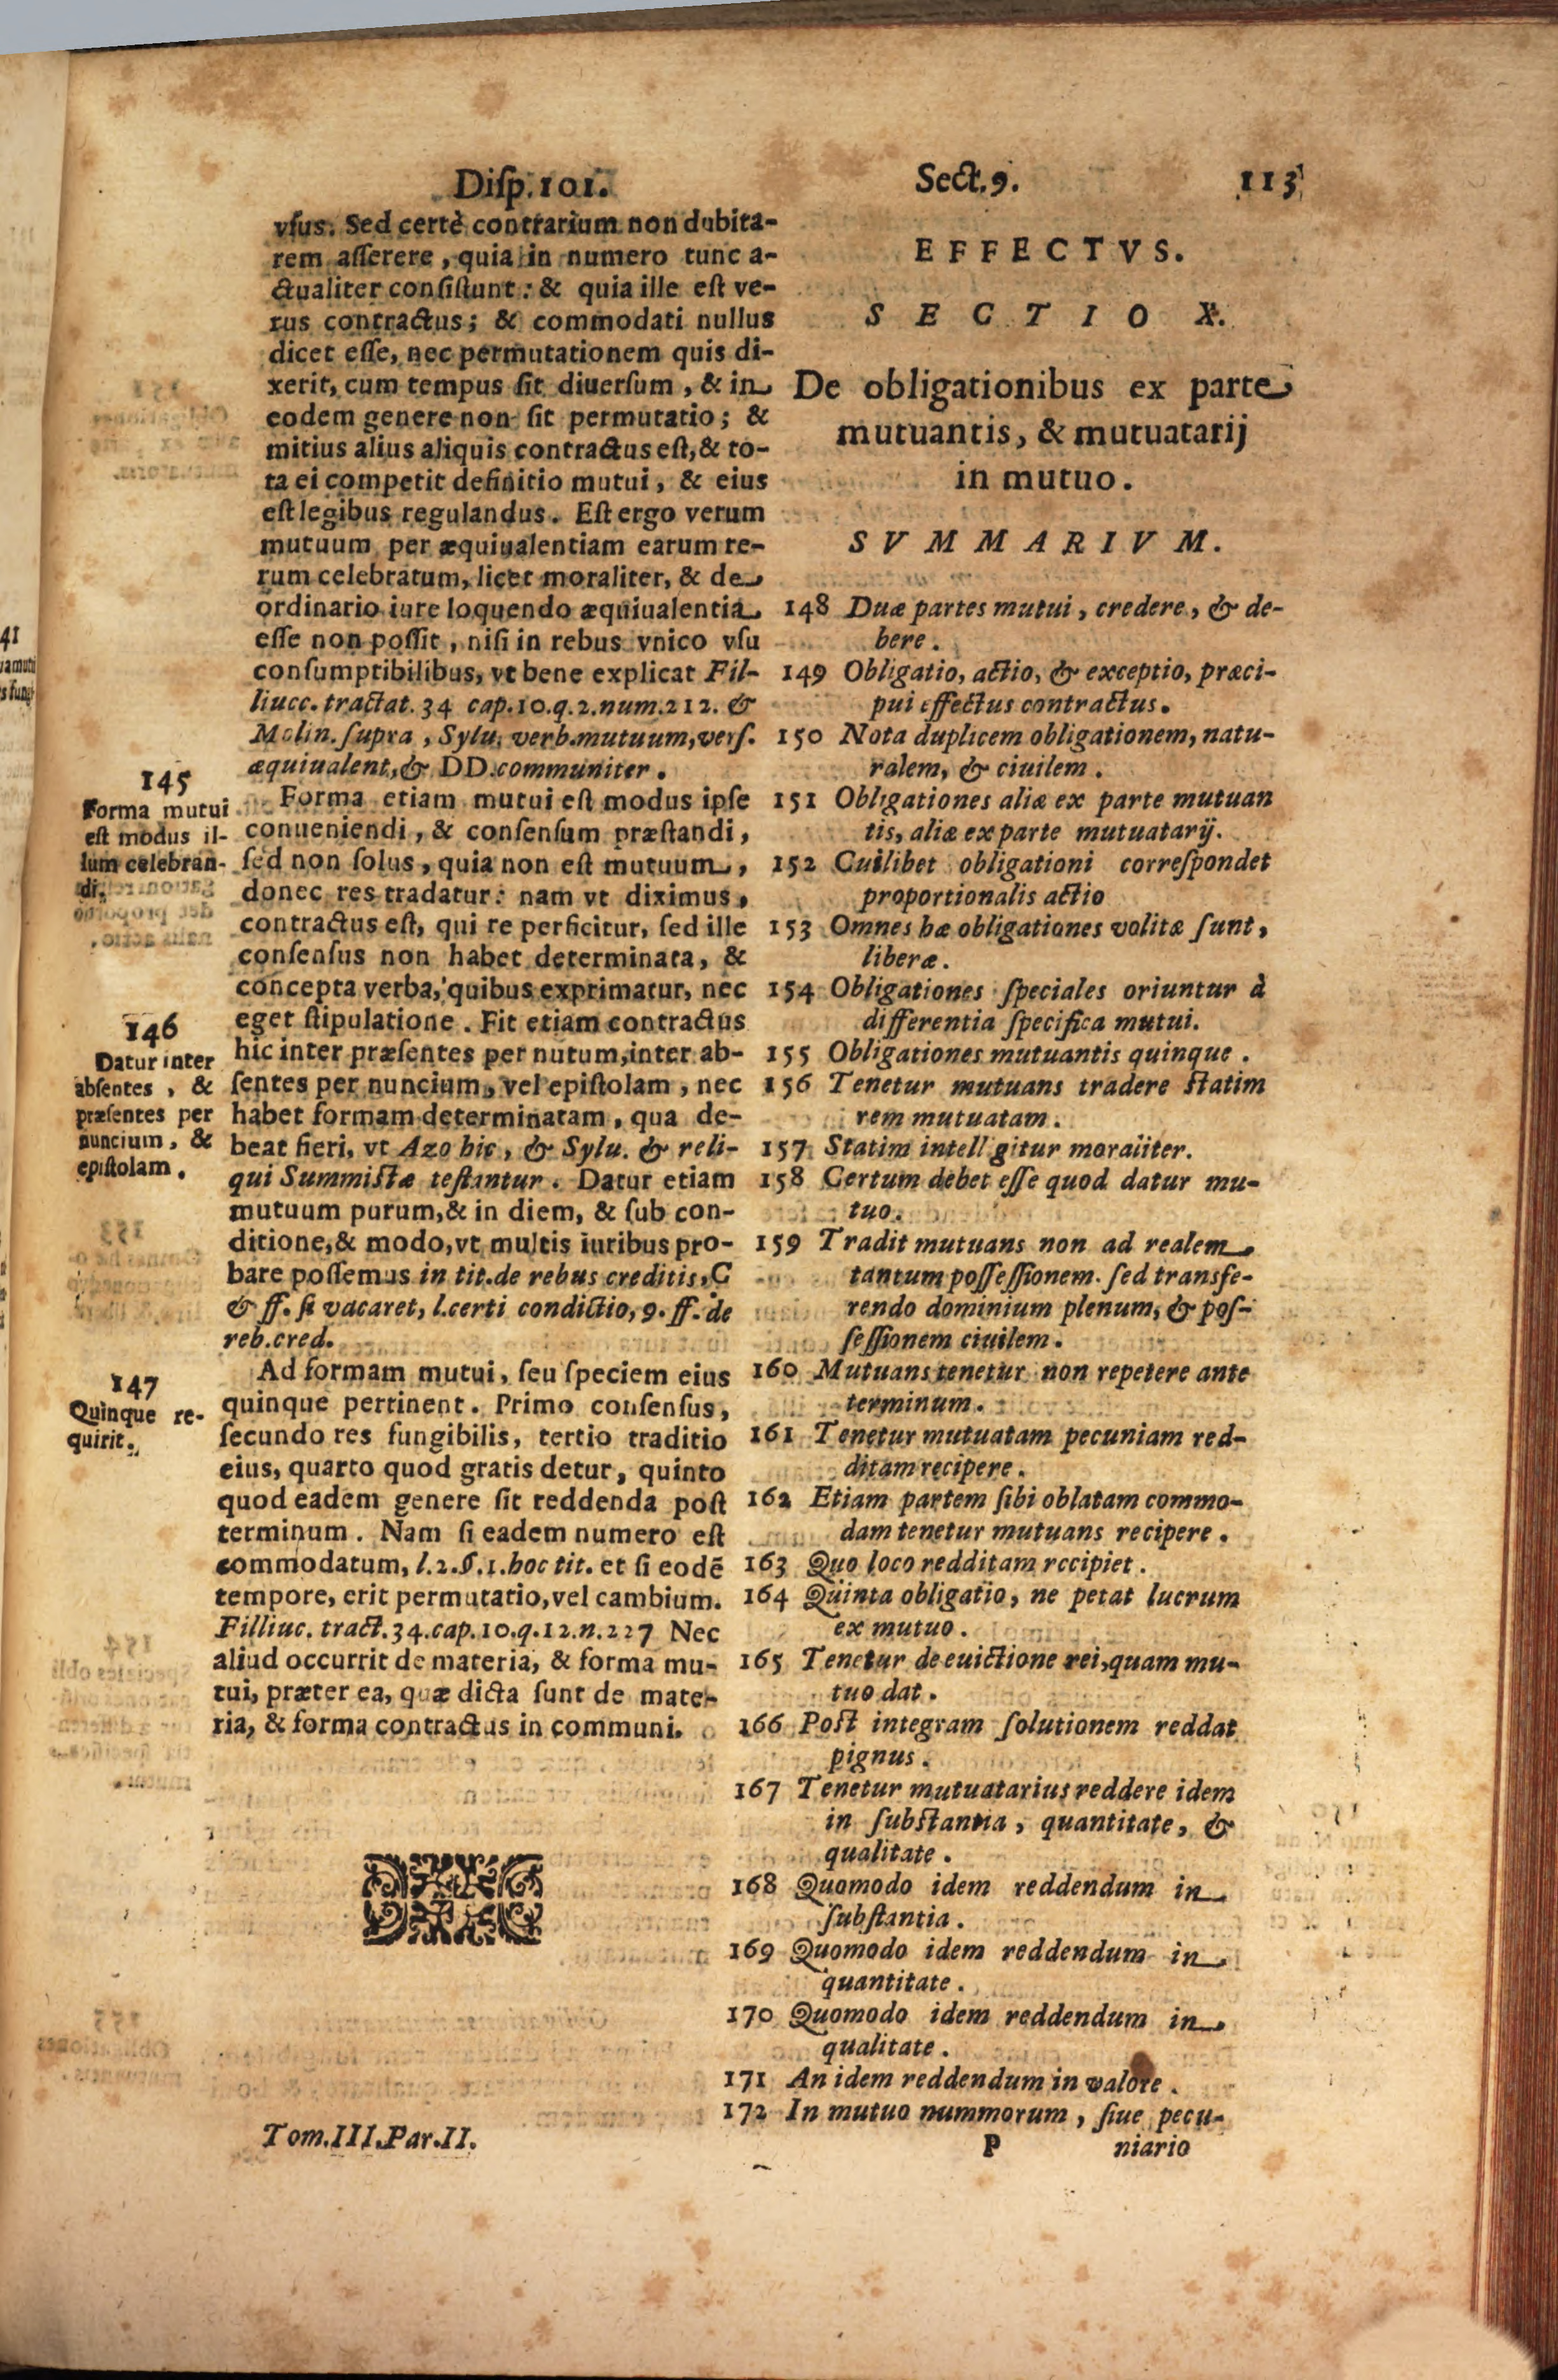 Diſp. 101. Sect. 9. 113
vſus. Sed certè contrarium non dubita-
rem aſſerere, quia in numero tunc a-
ctualiter conſiſtunt: & quia ille eſt ve-
rus contractus; & commodati nullus
dicet eſſe, nec permutationem quis di-
xerit, cum tempus ſit diuerſum, & in
eodem genere non ſit permutatio; &
mitius alius aliquis contractus eſt, & to-
ta ei competit definitio mutui, & eius
eſt legibus regulandus. Eſt ergo verum
mutuum per æquiualentiam earum re-
rum celebratum, licet moraliter, & de
ordinario iure loquendo æquiualentia
eſſe non poſſit, niſi in rebus vnico vſu
conſumptibilibus, vt bene explicat Fil-
liucc. tractat. 34 cap. 10. q. 2. num. 212. &
Molin. ſupra, Sylu. verb. mutuum, verſ.
æquiualent, & DD. communiter.
145
Forma mutui
eſt modus il-
lum celebran-
di.
Forma etiam mutui eſt modus ipſe
conueniendi, & conſenſum præſtandi,
ſed non ſolus, quia non eſt mutuum,
donec res tradatur: nam vt diximus,
contractus eſt, qui re perficitur, ſed ille
conſenſus non habet determinata, &
concepta verba, quibus exprimatur, nec
eget ſtipulatione. Fit etiam contractus
146
Datur inter
abſentes, &
præſentes per
nuncium, &
epiſtolam.
hic inter præſentes per nutum, inter ab-
ſentes per nuncium, vel epiſtolam, nec
habet formam determinatam, qua de-
beat fieri, vt Azo hic, & Sylu. & reli-
qui Summiſtæ teſtantur. Datur etiam
mutuum purum, & in diem, & ſub con-
ditione, & modo, vt multis iuribus pro-
bare poſſemus in tit. de rebus creditis, C
& ff. ſi vacaret, l. certi condictio, 9. ff. de
reb. cred.
147
Quinque re-
quirit.
Ad formam mutui, ſeu ſpeciem eius
quinque pertinent. Primo conſenſus,
ſecundo res fungibilis, tertio traditio
eius, quarto quod gratis detur, quinto
quod eadem genere ſit reddenda poſt
terminum. Nam ſi eadem numero eſt
commodatum, l. 2. §. 1. hoc tit. et ſi eodē
tempore, erit permutatio, vel cambium.
Filliuc. tract. 34. cap. 10. q. 12. n. 227 Nec
aliud occurrit de materia, & forma mu-
tui, præter ea, quæ dicta ſunt de mate-
ria, & forma contractus in communi.
Tom. III. Par. II.
EFFECTVS.
SECTIO X.
De obligationibus ex parte
mutuantis, & mutuatarij
in mutuo.
SVMMARIVM.
148 Duæ partes mutui, credere, & de-
bere.
149 Obligatio, actio, & exceptio, præci-
pui effectus contractus.
150 Nota duplicem obligationem, natu-
ralem, & ciuilem.
151 Obligationes aliæ ex parte mutuan
tis, aliæ ex parte mutuatarij.
152 Cuilibet obligationi correſpondet
proportionalis actio
153 Omnes hæ obligationes volitæ ſunt,
liberæ.
154 Obligationes ſpeciales oriuntur à
differentia ſpecifica mutui.
155 Obligationes mutuantis quinque.
156 Tenetur mutuans tradere ſtatim
rem mutuatam.
157 Statim intelligitur moraliter.
158 Certum debet eſſe quod datur mu-
tuo.
159 Tradit mutuans non ad realem
tantum poſſeſſionem. ſed transfe-
rendo dominium plenum, & poſ-
ſeſſionem ciuilem.
160 Mutuans tenetur non repetere ante
terminum.
161 Tenetur mutuatam pecuniam red-
ditam recipere.
162 Etiam partem ſibi oblatam commo-
dam tenetur mutuans recipere.
163 Quo loco redditam recipiet.
164 Quinta obligatio, ne petat lucrum
ex mutuo.
165 Tenetur de euictione rei, quam mu-
tuo dat.
166 Poſt integram ſolutionem reddat
pignus.
167 Tenetur mutuatarius reddere idem
in ſubſtantia, quantitate, &
qualitate.
168 Quomodo idem reddendum in
ſubſtantia.
169 Quomodo idem reddendum in
quantitate.
170 Quomodo idem reddendum in
qualitate.
171 An idem reddendum in valore.
172 In mutuo nummorum, ſiue pecu-
P niario